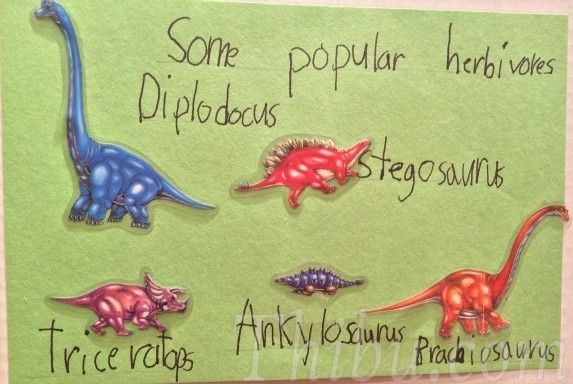 Some popular herbivores
Diplodocus
Stegosaurus
Triceratops
Ankylosaurus
Brachiosaurus
Thibu.com